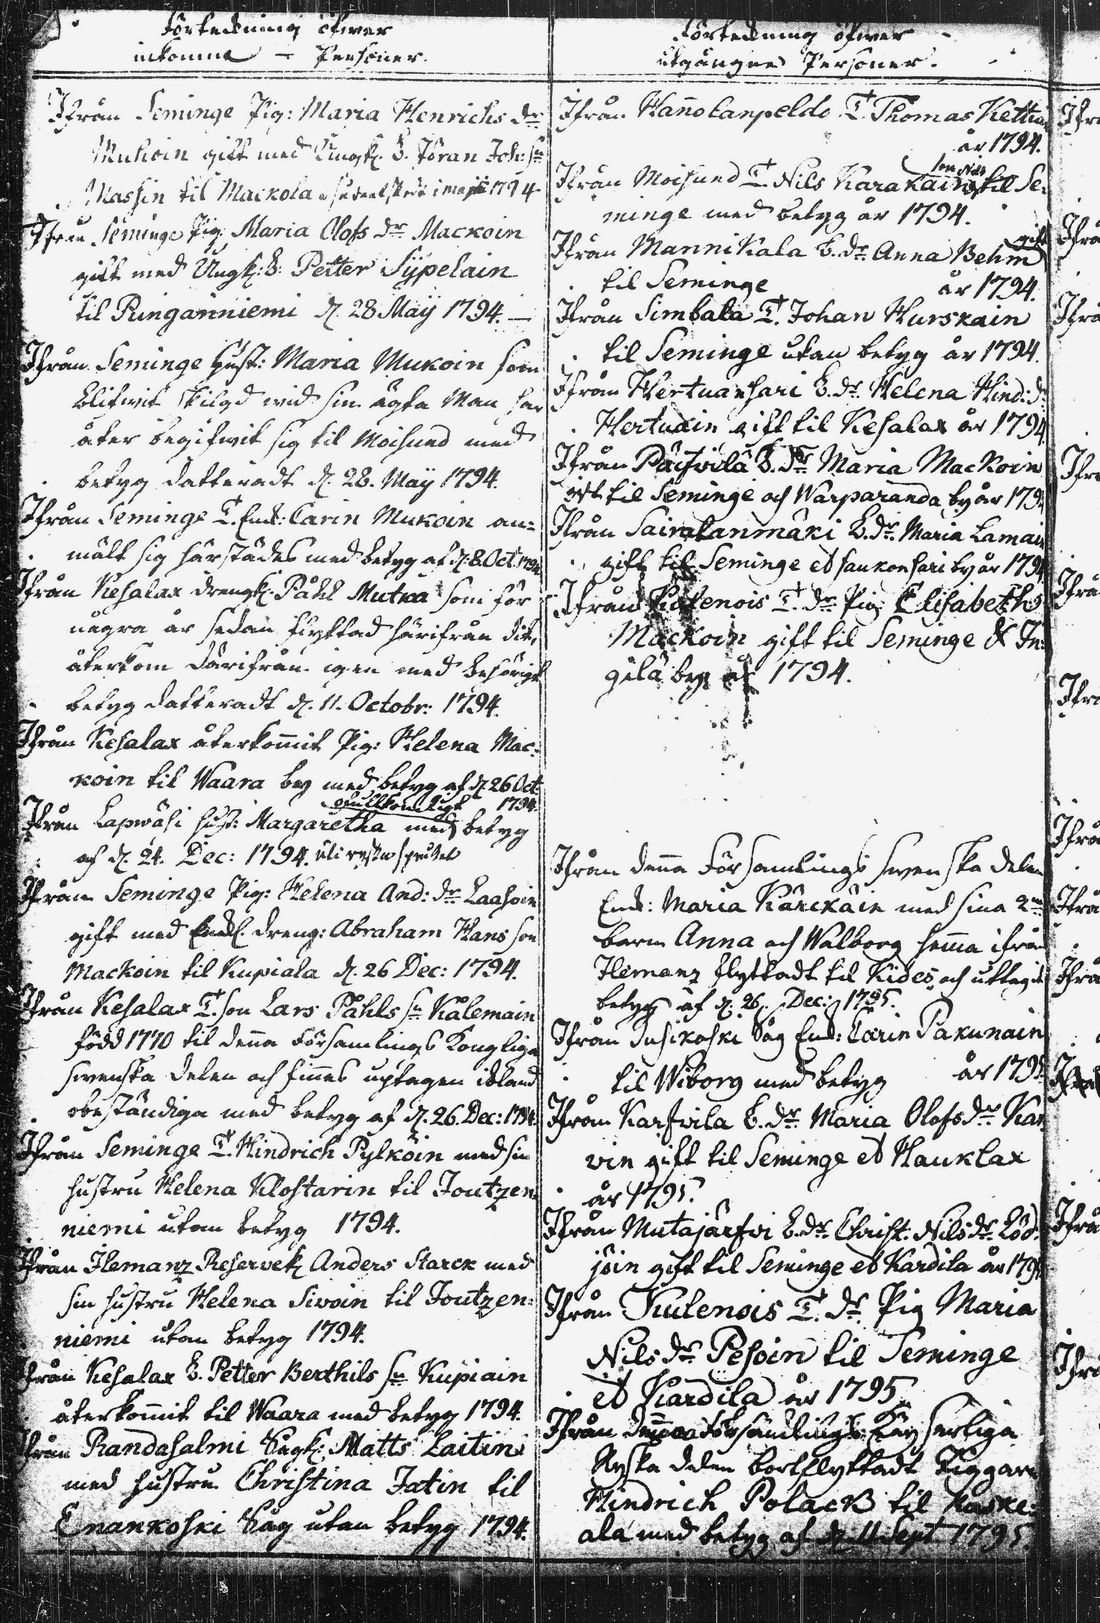 Förteckning öfwer
inkomne - Personer.
Ifrån Seminge Pig: Maria Henrichs dr
Mukoin gift med Ungk. B. Jöran Joh: sn
Massin til Mackola 1794
Ifrån Seminge Pig: Maria Olofs dr Mackoin
gift med Ungk: B: Petter Sypelain
til Ringanniemi d. 28 May 1794. -
Ifrån Seminge Hust: Maria Mukoin som
blifwit skilgd wid sin ägta Man har
åter begifwit sig til Moisund med
betyg datteradt d. 28. May 1794.
Ifrån Seminge T. Enk: Carin Mukoin an-
mält sig härstädes med betyg af d. 8 Oct 1794
Ifrån Kesalax drengk. Påhl Mutka som för
några år sedan flyttad härifrån dit,
återkom därifrån igen med behörigt
betyg datteradt d. 11. Octobr: 1794.
Ifrån Kesalax återkommit Pig: Helena Mac-
koin til Waara by med betyg af d 26 Oct
1794.
Ifrån Lapwäsi hust: Margaretha med betyg
af d. 24. Dec: 1794.
Ifrån Seminge Pig: Helena And: dr Laasoin
gift med dreng: Abraham Hans son
Mackoin til Kupiala d. 26 Dec: 1794.
Ifrån Kesalax T. son Lars Påhls sn Kalemain
född 1770 til denna Församlings Kongliga
swenska delen och finnes uptagen ibland
obeständiga med betyg af d. 26. Dec: 1794.
Ifrån Seminge T. Hindrich Pylköin med sin
hustru Helena Klostarin til Joutzen
niemi utan betyg 1794.
Ifrån Ilemanz Reservek. Anders Starck med
sin hustru Helena Sivoin til Joutzen-
niemi utan betyg 1794.
Ifrån Kesalax B. Petter Berthils sn Kupiain
återkommit til Waara med betyg 1794.
Ifrån Randasalmi Sågk: Matts Laitin
med hustru Christina Jatin til
Enankoski Såg utan betyg 1794.
Förteckning öfwer
utgångne Personer.
Ifrån Hannolanpeldo T. Thomas Kettu
år 1794.
son Nils
Ifrån Moisund T. Nils Karakain til Se-
minge med betyg år 1794.
gift
Ifrån Mannikala B. dr Anna Behm
til Seminge år 1794.
Ifrån Simbala T. Johan Hurskain
til Seminge utan betyg år 1794.
Ifrån Hertuansari B. dr Helena Hind: dr
Hertuain gift til Kesalax år 1794
Ifrån Päifvilä B. dr Maria Mackoin
gift til Seminge och Warparanda by år 1794
Ifrån Sairalanmäki B. dr Maria Lamain
gift til Seminge et Saukonsari by år 1794
Ifrån Kulenois T. dr Pig Elisabeth
Mackoin gift til Seminge & In-
gilä by år 1794.
Ifrån denna Församlings swenska delen
Enk: Maria Kärckäin med sina 2ne
barn Anna och Walborg hemma ifrån
Ilemanz flyttadt til Kides, och uttagit
betyg af d. 26. Dec: 1795.
Ifrån Juhikoski Såg Enk: Carin Pakunain
til Wiborg med betyg år 1795
Ifrån Karfvila B. dr Maria Olofs dr Kar
vin gift til Seminge et Hauklax
år 1795.
Ifrån Mutajärfvi B. dr Christ: Nils dr Löd
jöin gift til Seminge et Kardila år 1795
Ifrån Kulenois T. dr Pig Maria
Nils dr Pesoin til Seminge
et Kardila år 1795
Ifrån denna Församlings Kayserliga
Ryska delen bortflyttadt Tiggare
Hindrich Polack til Kaske-
ala med betyg af d 11 Sept 1795.